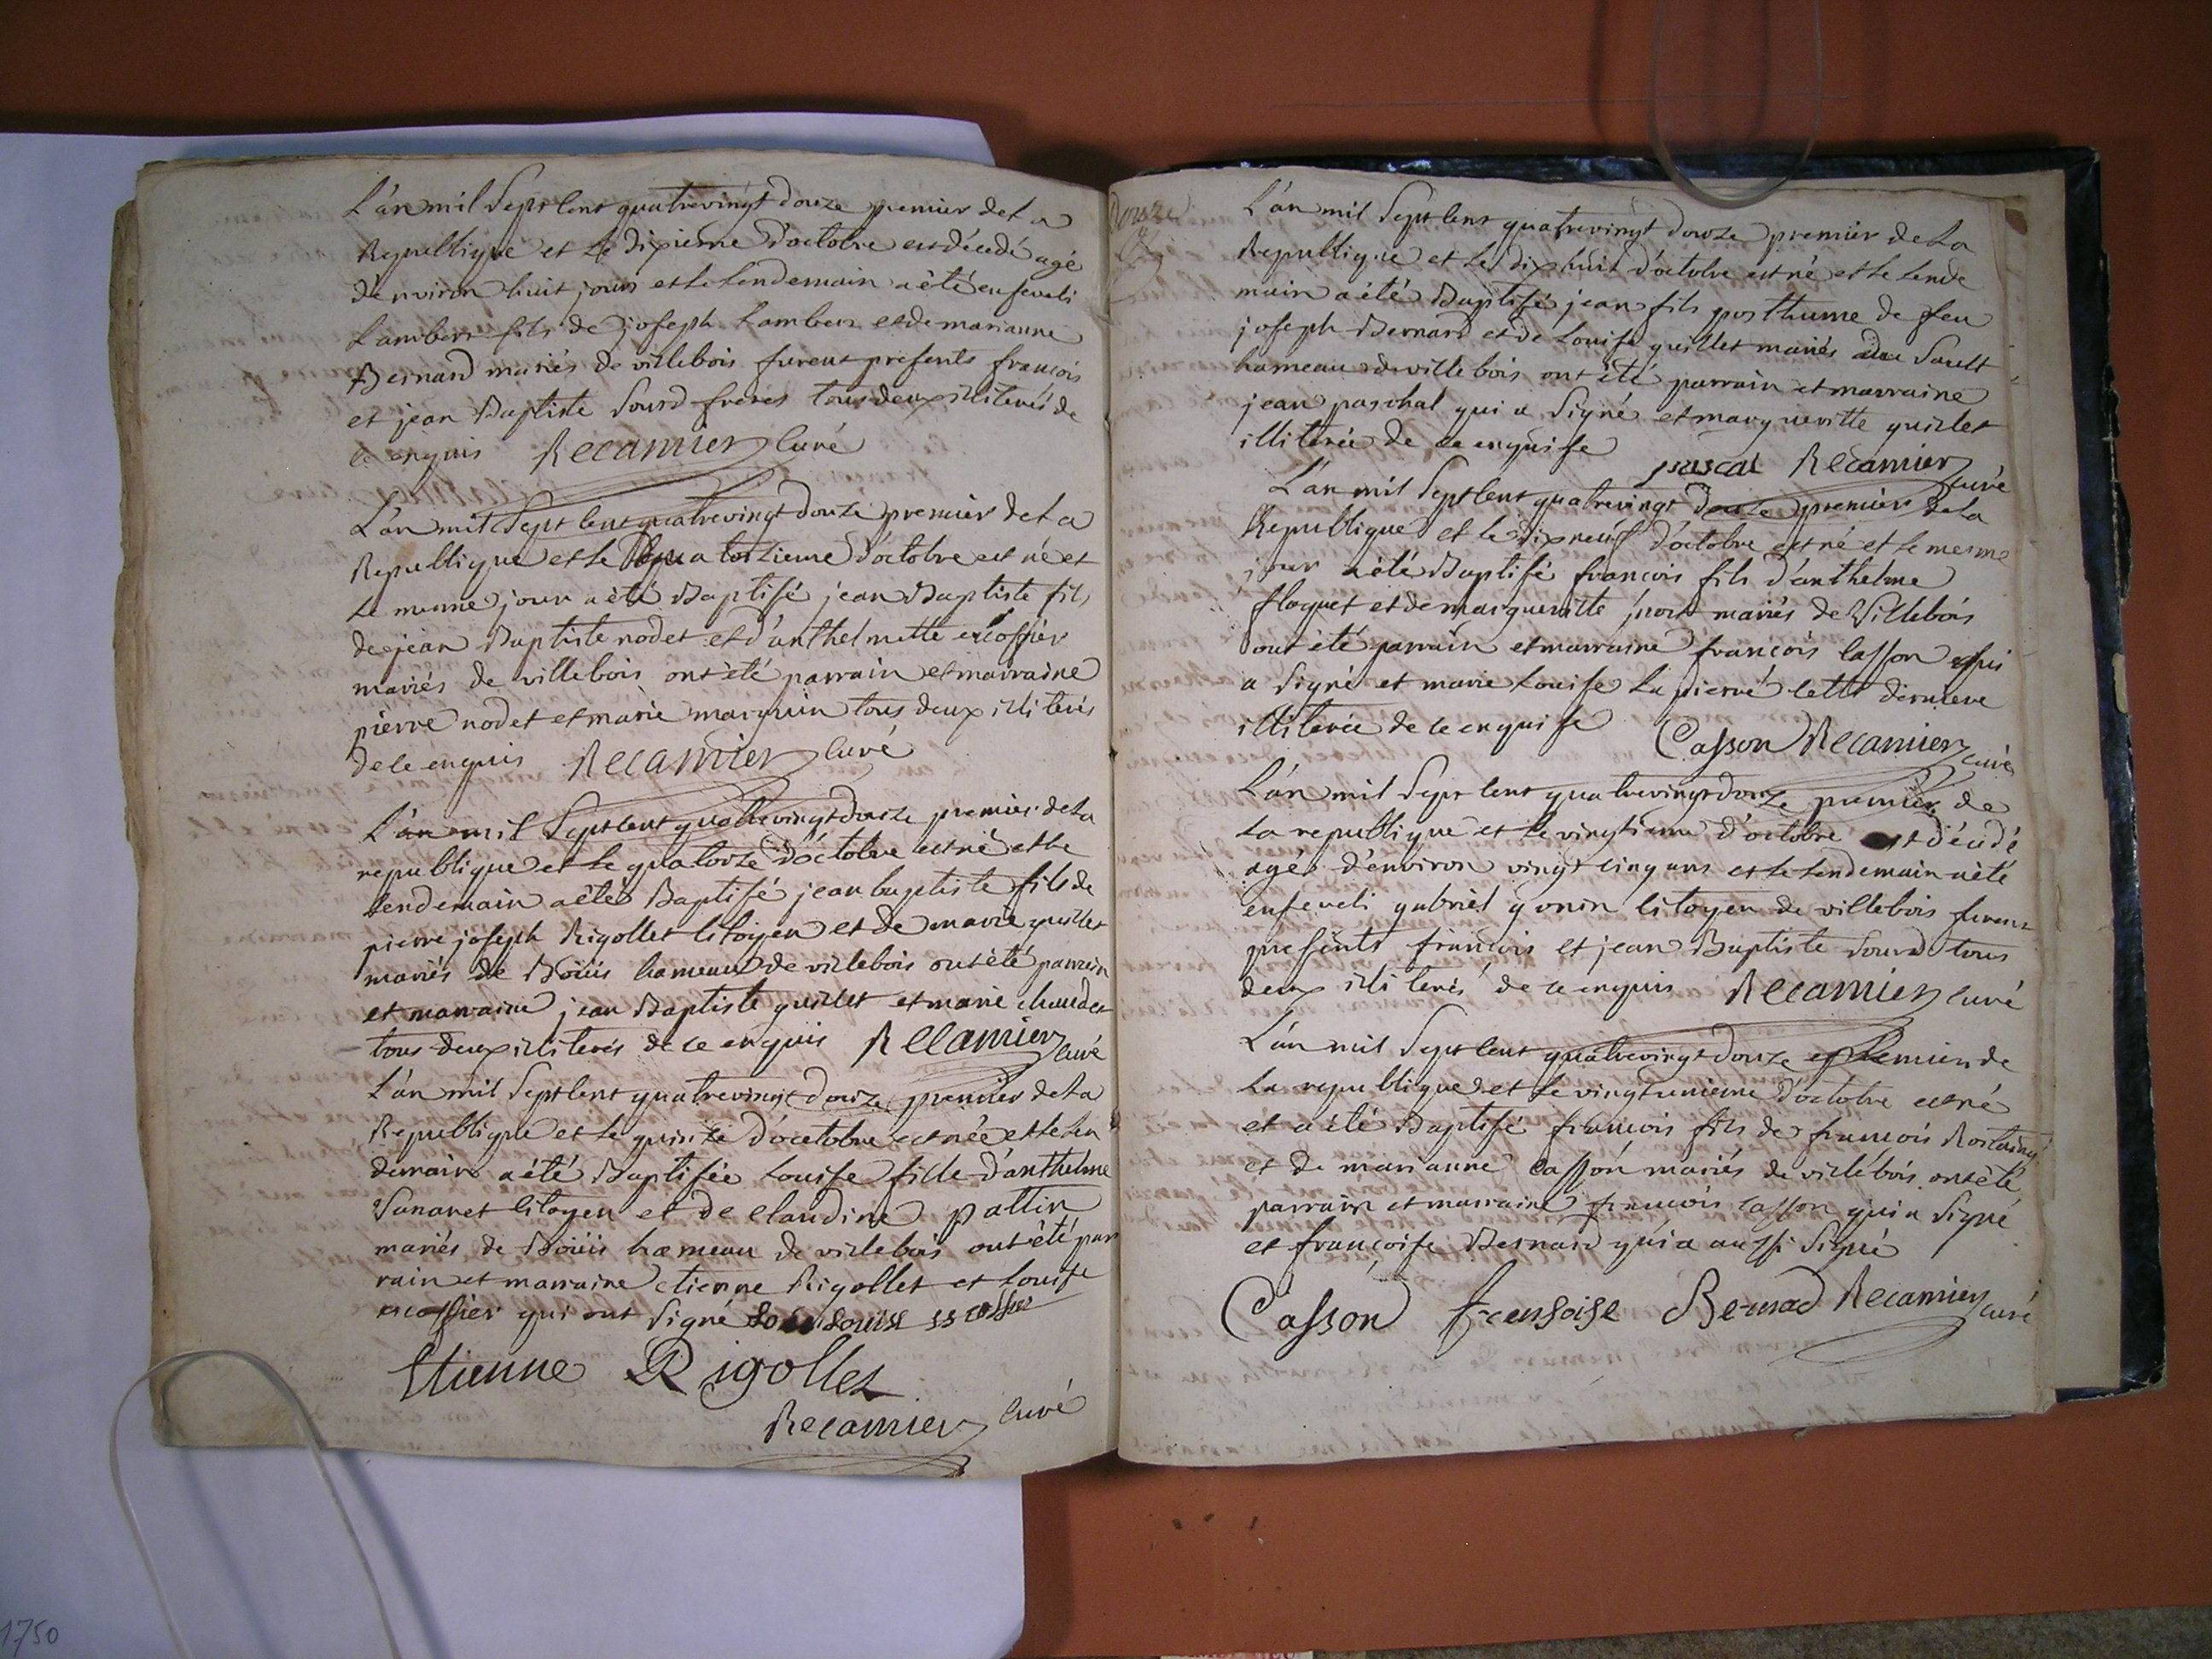 L'an mil Sept Cent quatrevingt douze premier de La
Republique et Le dixieme d'octobre est décedé agé
d'environ huit jours et le Lendemain a été enseveli
Lambert fils de joseph Lambert et de marianne
Bernard mariés de villebois furent presents francois
et jean Baptiste Sourd freres tous deux illiterés de
ce enquis Recamier Curé
L'an mil Sept Cent quatrevingt douze premier de La
Republique et le quatorzieme d'octobre est né et
Le mesme jour a été Baptisé jean Baptiste fils
de jean Baptiste nodet et d'anthelmette escossier
mariés de villebois ont été parrain et marraine
pierre nodet et marie marquin tous deux illiterés
de ce enquis Recamier Curé
L'an mil Sept Cent quatrevingt douze premier de La
republique et Le quatorze d'octobre est né et le
Lendemain a été Baptisé jean baptiste fils de
pierre joseph Rigollet Citoyen et de marie quillet
mariés de Boüis hameau de villebois ont été parrain
et marraine jean Baptiste quillet et marie chaudet
tous deux illiterés de ce enquis Recamier Curé
L'an mil Sept Cent quatrevingt douze premier de La
Republique et Le quinze d'octobre est née et le Len
demain a été Baptisée Louise fille d'anthelme
Citoyen et de Claudine pattin
mariés de Boüis hameau de villebois ont été par
rain et marraine etienne Rigollet et Louise
escossier qui ont Signé Louise escossier
Etienne Rigollet
Recamier Curé
Douze
L'an mil Sept Cent quatrevingt douze premier de La
Republique et Le dix huit d'octobre est né et Le Lende
main a été Baptisé jean fils posthume de feu
joseph Bernard et de Louise quillet mariés du Sault
hameau de villebois ont été parrain et marraine
jean paschal qui a Signé et margueritte quillet
illiterée de ce enquise
pascal Recamier Curé
L'an mil Sept Cent quatrevingt douze premier de La
Republique et le dix neuf d'octobre est né et Le mesme
jour a été Baptisé francois fils d'anthelme
floquet et de margueritte mariés de Villebois
ont été parrain et marraine francois Casson qui
a Signé et marie Louise Lapierre cette derniere
illiterée de ce enquise Casson Recamier Curé
L'an mil Sept Cent quatrevingt douze premier de
La republique et Le vingtieme d'octobre est décédé
agé d'environ vingt cinq ans et le Lendemain a été
enseveli gabriel gonin Citoyen de villebois furent
presents francois et jean Baptiste Sourd tous
deux illiterés de ce enquis Recamier Curé
L'an mil Sept Cent quatrevingt douze premier de
La republique et Le vingt unieme d'octobre est né
et a été Baptisé francois fils de francois Rostaing
et de marianne Casson mariés de villebois ont été
parrain et marraine francois Casson qui a Signé
et francoise Bernard qui a aussi Signé
Casson fransoise Bernad Recamier Curé
1750